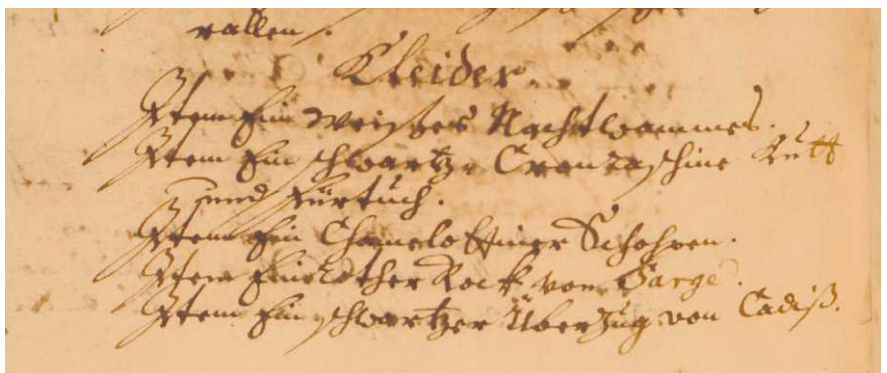 rallen.
Kleider
Item Ein weisses Nachtwammes.
Item Ein schwartze Cronraschine Kutt
und Fürtuch.
Item Ein Chamelottiner Schohpen.
Item Ein rother Rock von Sarge.
Item Ein schwartzer Überzug von Cadiß.